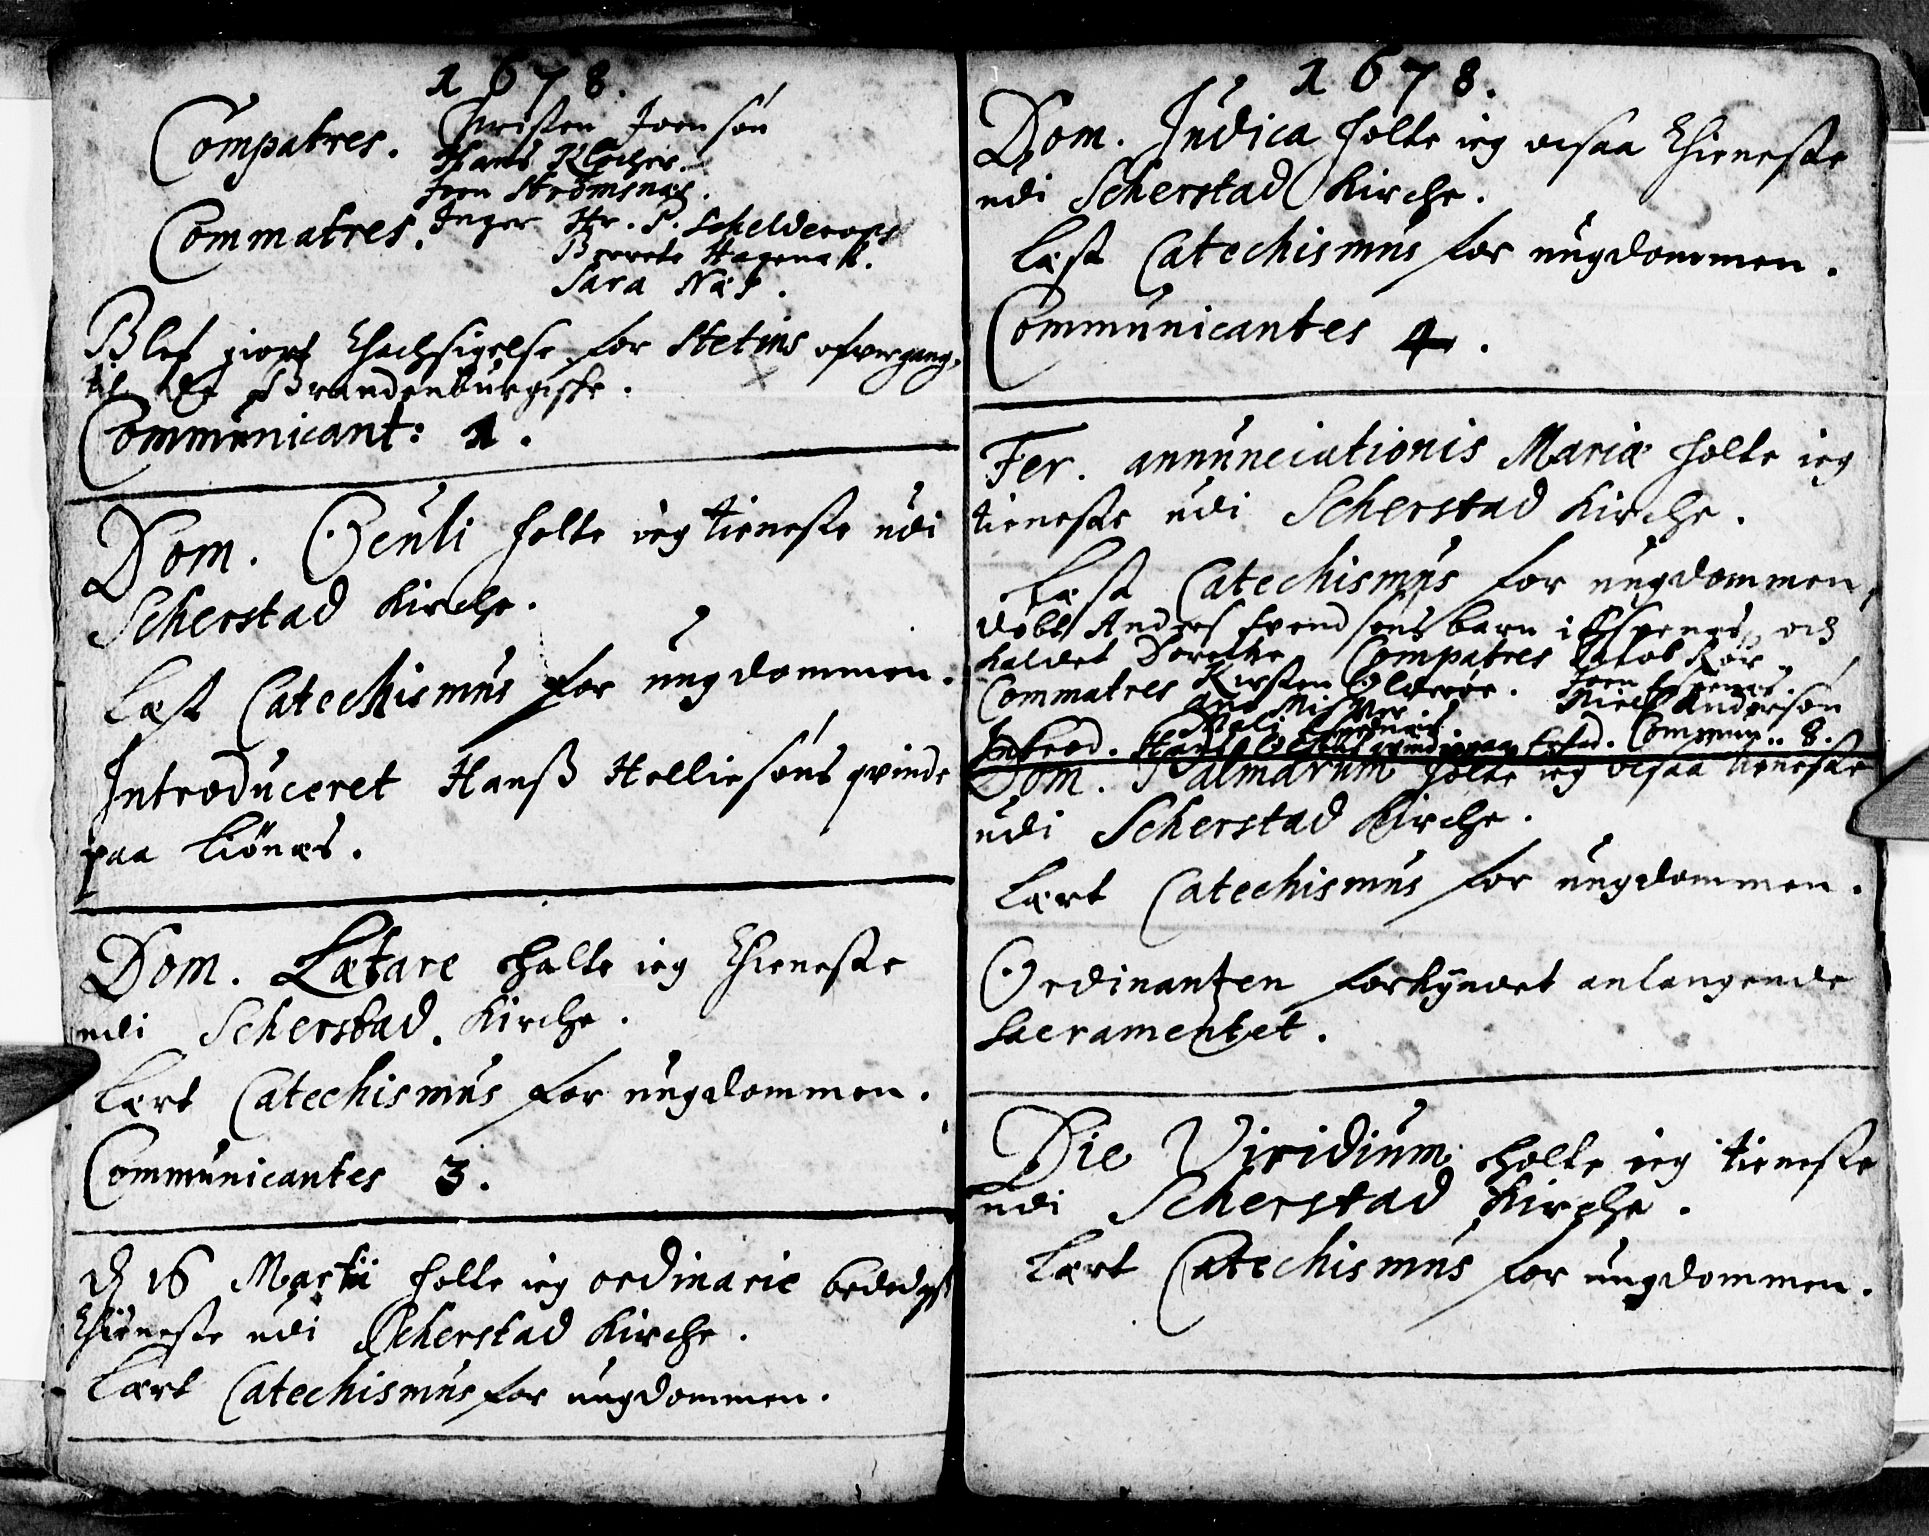 1678.
Compatres. Christen Joensøn
Hans Klocher.
Joen Strømsnæs.
Commatres. Inger Hr. P. Schelderops
Berete Hagenæs.
Sara Næs.
Blef giort Thachsigelse for Stetins ofvergang
til de Brandenburgiske.
Communicant: 1.
Dom. Oculi holte ieg tieneste udi
Scherstad Kirche.
Læst Catechismus for ungdommen.
Introduceret Hanß Helliesøns qvinde
paa Liønæs.
Dom. Lætare holte ieg Thieneste
udi Scherstad Kirche.
Lært Catechismus for ungdommen.
Communicantes 3.
D 16 Martii holte ieg ordinarie bededags
Thieneste udi Scherstad Kirche.
Lært Catechismus for ungdommen.
1678.
Dom. Judica holte ieg ocsaa Thieneste
udi Scherstad Kirche.
Læst Catechismus for ungdommen.
Communicantes 4.
Fer. annunciationis Mariæ holte ieg
tieneste udi Scherstad Kirche.
Læst Catechismus for ungdommen,
døbt Anders søns barn i Espenæs, och
kaldet Dorethe Compatres Jacob Rør
Commatres Kirsten Joen Espenæs.
Niels Andersøn
Introd. Hans qvinde paa Commun.. 8.
Dom. Palmarum holte ieg ocsaa tieneste
udi Scherstad Kirche.
Lært Catechismus for ungdommen.
Ordinantzen forkyndet anlangende
Sacramentet.
Die Viridium holte ieg tieneste
udi Scherstad Kirche.
Lært Catechismus for ungdommen.